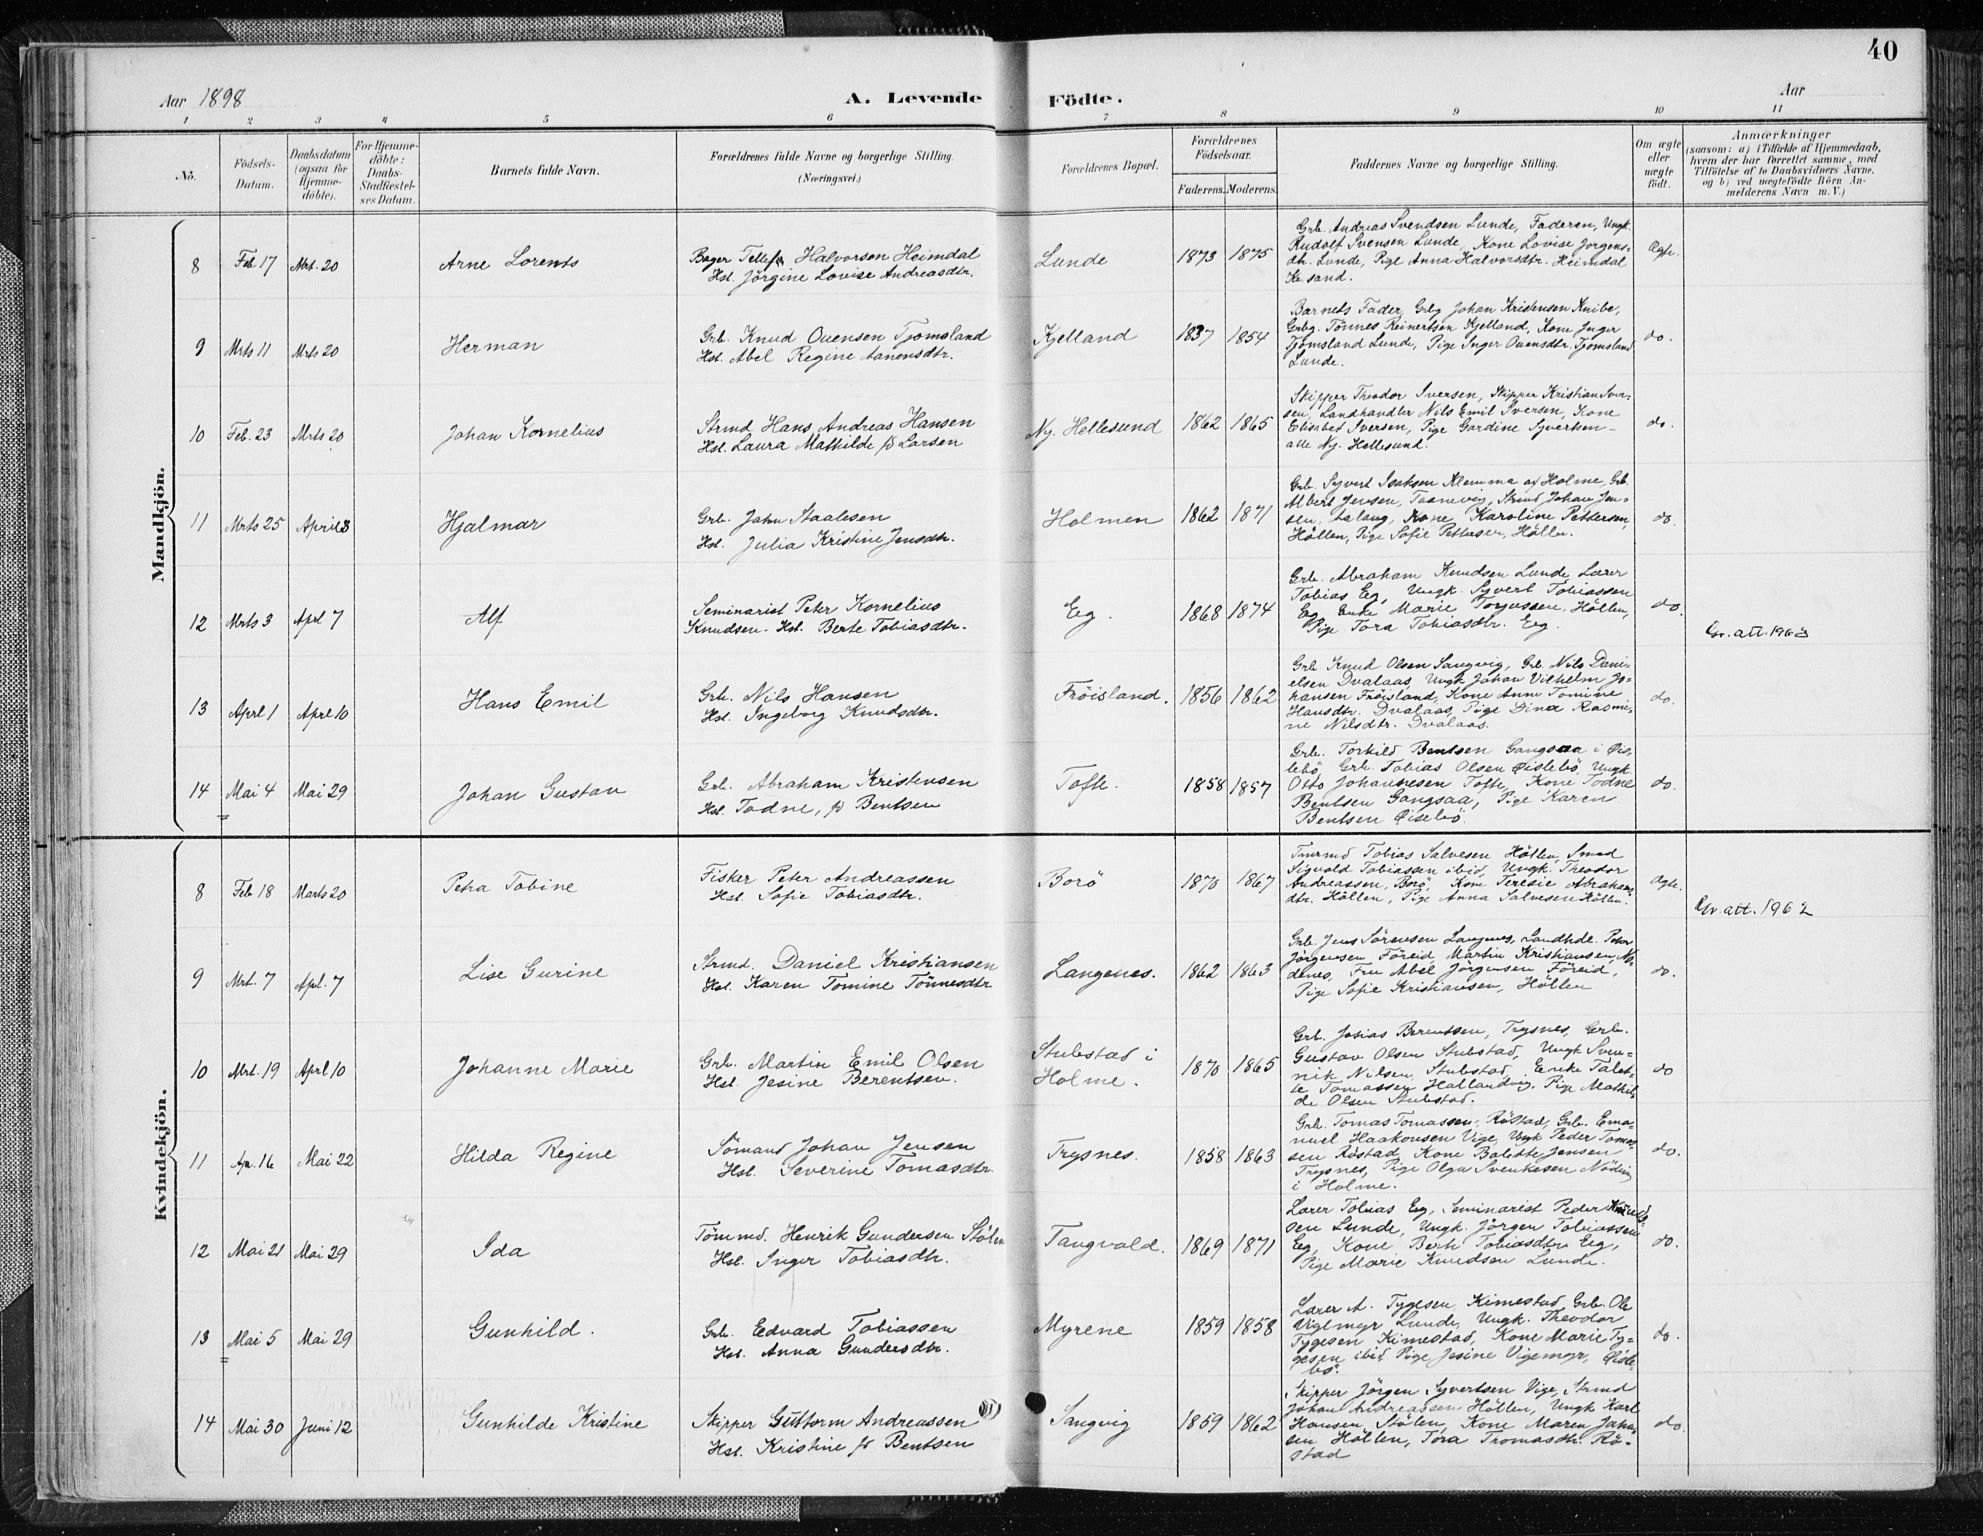 40
Aar 1898
A. Levende Födte.
Aar
1 2 3 4 5 6 7 8 9 10 11
No.
Födsels-
Datum.
Daabsdatum
(ogsaa for
Hjemme-
döbte).
For Hjemme-
döbte:
Daabs-
Stadfæstel-
ses Datum.
Barnets fulde Navn.
Forældrenes fulde Navne og borgerlige Stilling.
(Næringsvei.)
Forældrenes Bopæl.
Forældrenes
Födselsaar.
Faderens. Moderens.
Faddernes Navne og borgerlige Stilling.
Om ægte
eller
uægte
födt.
Anmærkninger
(saasom: a) i Tilfælde af Hjemmedaab,
hvem der har forrettet samme, med
Tilföielse af to Daabsvidners Navne,
og b) ved uægtefödte Börn An-
melderens Navn m. V.)
Mandkjön.
8 Feb. 17 Mrt. 20 Arne Lorents
Bager Tellef Halvorsen Heimdal
Hst. Jörgine Lovise Andreasdtr.
Lunde 1873 1875
Grb. Andreas Svendsen Lunde, Faderen, Ungk.
Rudolf Svensen Lunde, Kone Lovise Jorgens-
dtr. Lunde, Pige Anna Halvorsdtr. Heimdal
Kr.sand.
Ægte.
9 Mrts 11 Mrts 20 Herman
Grb. Knud Ouensen Tjomsland
Hst. Abel Regine Aanensdtr.
Kjelland 1837 1854
Barnets Fader, Grbg Johan Kristensen Knibe,
Grbg. Tönnes Reinertsen Kjelland, Kone Inger
Tjomsland Lunde, Pige Inger Ouensdtr. Tjomsland
Lunde.
do.
10 Feb. 23 Mrts 20 Johan Kornelius
Strmd Hans Andreas Hansen
Hst. Laura Mathilde f. Larsen
Ny. Hellesund 1862 1865
Skipper Theodor Iversen, Skipper Kristian Iver-
sen, Landhandler Nils Emil Iversen, Kone
Elisabet Iversen, Pige Gardine Syvertsen –
alle Ny-Hellesund.
do.
11 Mrts 25 April 3 Hjalmar
Grb. John Staalesen
Hst. Julia Kristine Jensdtr.
Holmen 1862 1871
Grb. Syvert Isaksen Klemma af Holme, Grb.
Albert Jensen, Taanevig, Strmd Johan Jen-
sen, Kone Karoline Pettersen,
Höllen, Pige Sofie Pettersen, Höllen.
do.
12 Mrts 3 Aprl 7 Alf
Seminarist Peter Kornelius
Knudsen. Hst. Berte Tobiasdtr.
Eeg. 1868 1874
Grb. Abraham Knudsen Lunde, Lærer
Tobias Eeg, Ungk. Syvert Tobiassen
Eeg Enke Marie Torjussen, Höllen,
Pige Tora Tobiasdtr. Eeg.
do.
Gr. att. 1963
13 Aprl 1 Aprl 10 Hans Emil
Grb. Nils Hansen
Hst. Ingeborg Knudsdtr.
Fröisland. 1856 1862
Grb Knud Olsen Sangvig, Grb. Nils Dani-
elsen Dvalaas, Ungk Johan Vilhelm Jo-
hansen Fröisland, Kone Anne Tomine
Hansdtr. Dvalaas, Pige Dina Rasmi-
ne Nilsdtr. Dvalaas.
do.
14 Mai 4 Mai 29 Johan Gustav
Grb. Abraham Kristensen
Hst. Todne, f. Bentsen
Tofte. 1858 1857
Grb. Torkild Bentsen Gangsaa i Øis-
lebö, Grb. Tobias Olsen Øislebö, Ungk.
Otto Johannesen Tofte, Kone Todne
Bentsen Gangsaa, Pige Karen
Bentsen Øislebö.
do.
Kvindekjön.
8 Feb 18 Marts 20 Petra Tobine
Fisker Peter Andreassen
Hst. Sofie Tobiasdtr.
Borö 1870 1867
Tmrmd Tobias Salvesen Höllen, Smed
Sigvald Tobiassen ibid, Ungk. Theodor
Andreassen, Borö, Kone Teresie Abrahams-
dtr. Höllen, Pige Anna Salvesen Höllen.
Ægte.
Gr. att. 1962
9 Mrt. 7 Apl. 7 Lise Gurine
Strmd. Daniel Kristiansen
Hst. Karen Tomine Tönnesdtr
Langenes. 1862 1863
Grb. Jens Sörensen Langenes, Landhdl. Peter
Jörgensen Föreid, Martin Kristiansen,
Fru Abel Jörgensen Föreid,
Pige Sofie Kristiansen, Höllen
do.
10 Mrt. 19 Aprl 10 Johanne Marie
Grb. Martin Emil Olsen
Hst. Jesine Berentsen.
Stubstad i
Holme. 1870 1865
Grb. Josias Berentsen, Trysnes, Grb.
Gustav Olsen Stubstad, Ungk Sven-
nik Nilsen, Stubstad, Enke Talet-
te Tomassen Hallandvig, Pige Mathil-
de Olsen Stubstad.
do
11 Ap. 16 Mai 22 Hilda Regine
Sömand Johan Jensen
Hst. Severine Tomasdtr.
Trysnes. 1858 1863
Grb. Tomas Tomassen, Röstad, Grb. Ema-
nuel Haakonsen Vige, Ungk Peder Tomas-
sen Röstad, Kone Bolette Jensen
Trysnes, Pige Olga Svenkesen Nöding
i Holme.
do.
12 Mai 21 Mai 29 Ida
Tömmd. Henrik Gundersen Stölen
Hst. Inger Tobiasdtr.
Tangvald. 1869 1871
Lærer Tobias Eeg, Seminarist Peder Knud-
sen Lunde, Ungk. Jörgen Tobiassen
Eeg, Kone Berte Tobiasdtr Eeg,
Pige Marie Knudsen Lunde.
do.
13 Mai 5 Mai 29 Gunhild.
Grb. Eedvard Tobiassen
Hst. Anna Gundersdtr.
Myrene 1859 1858
Lærer A. Tygesen, Kimestad Grb. Ole
Vigemyr Lunde, Ungk. Theodor
Tygesen Kimestad, Kone Marie Ty-
gesen ibid, Pige Jesine Vigemyr, Øisle-
bö.
do.
14 Mai 30 Juni 12 Gunhilde Kristine
Skipper Guttorm Andreassen
Hst. Kristine f. Bentsen
Sangvig 1859 1862
Skipper Jörgen Syvertsen Vige, Strmd
Johan Andreassen Höllen, Ungk Karl
Hansen Stölen, Kone Maren Johan-
sen Höllen, Tora Tromasdtr. Rö-
stad
do.